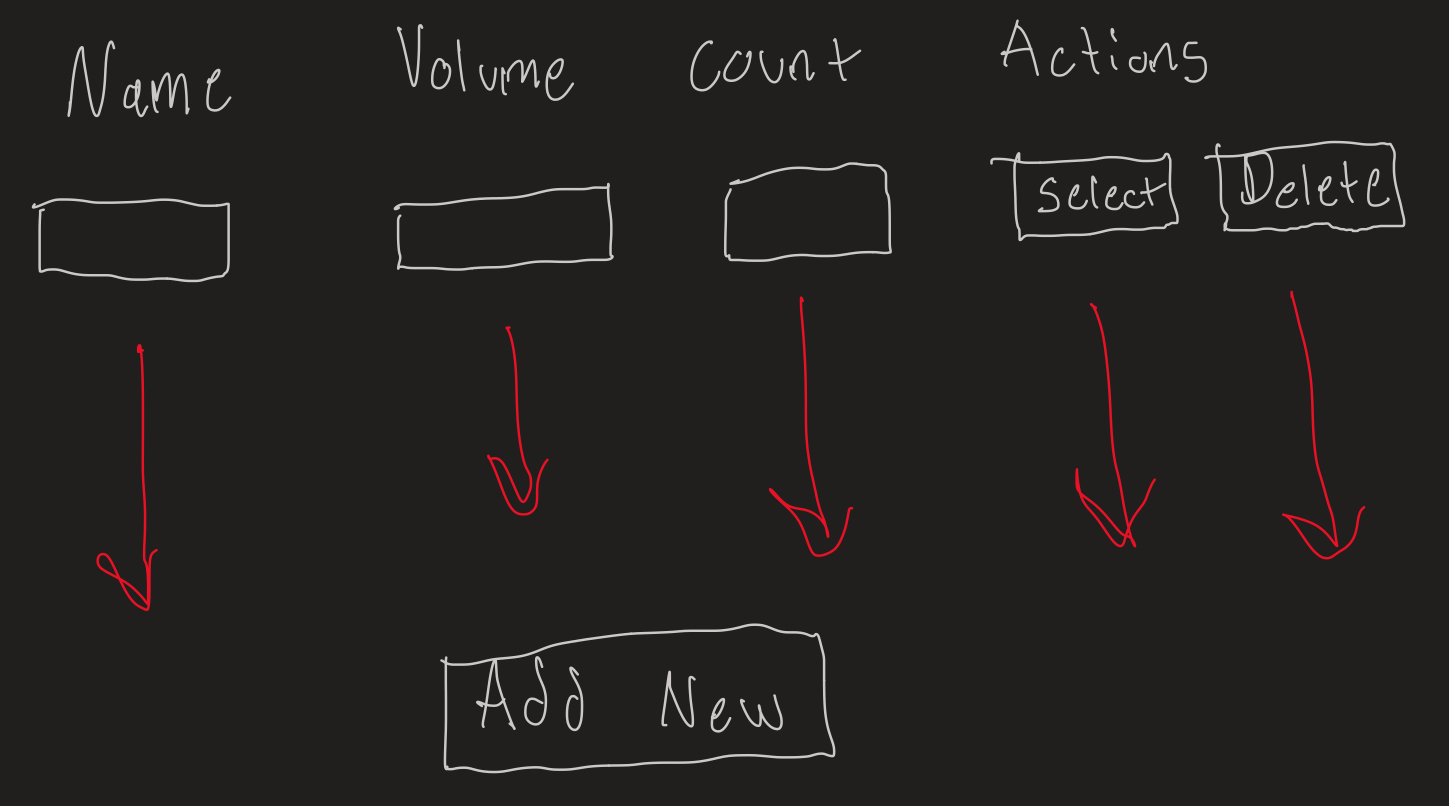 Name Volume Count Actions
Select Delete
Add New